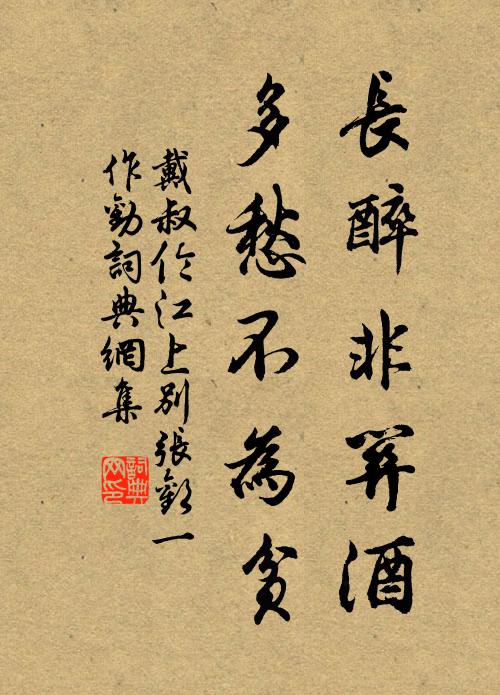 長醉非關酒
多愁不為貧
戴叔倫江上別張歡一
作勸詞典網集
詞典
网印